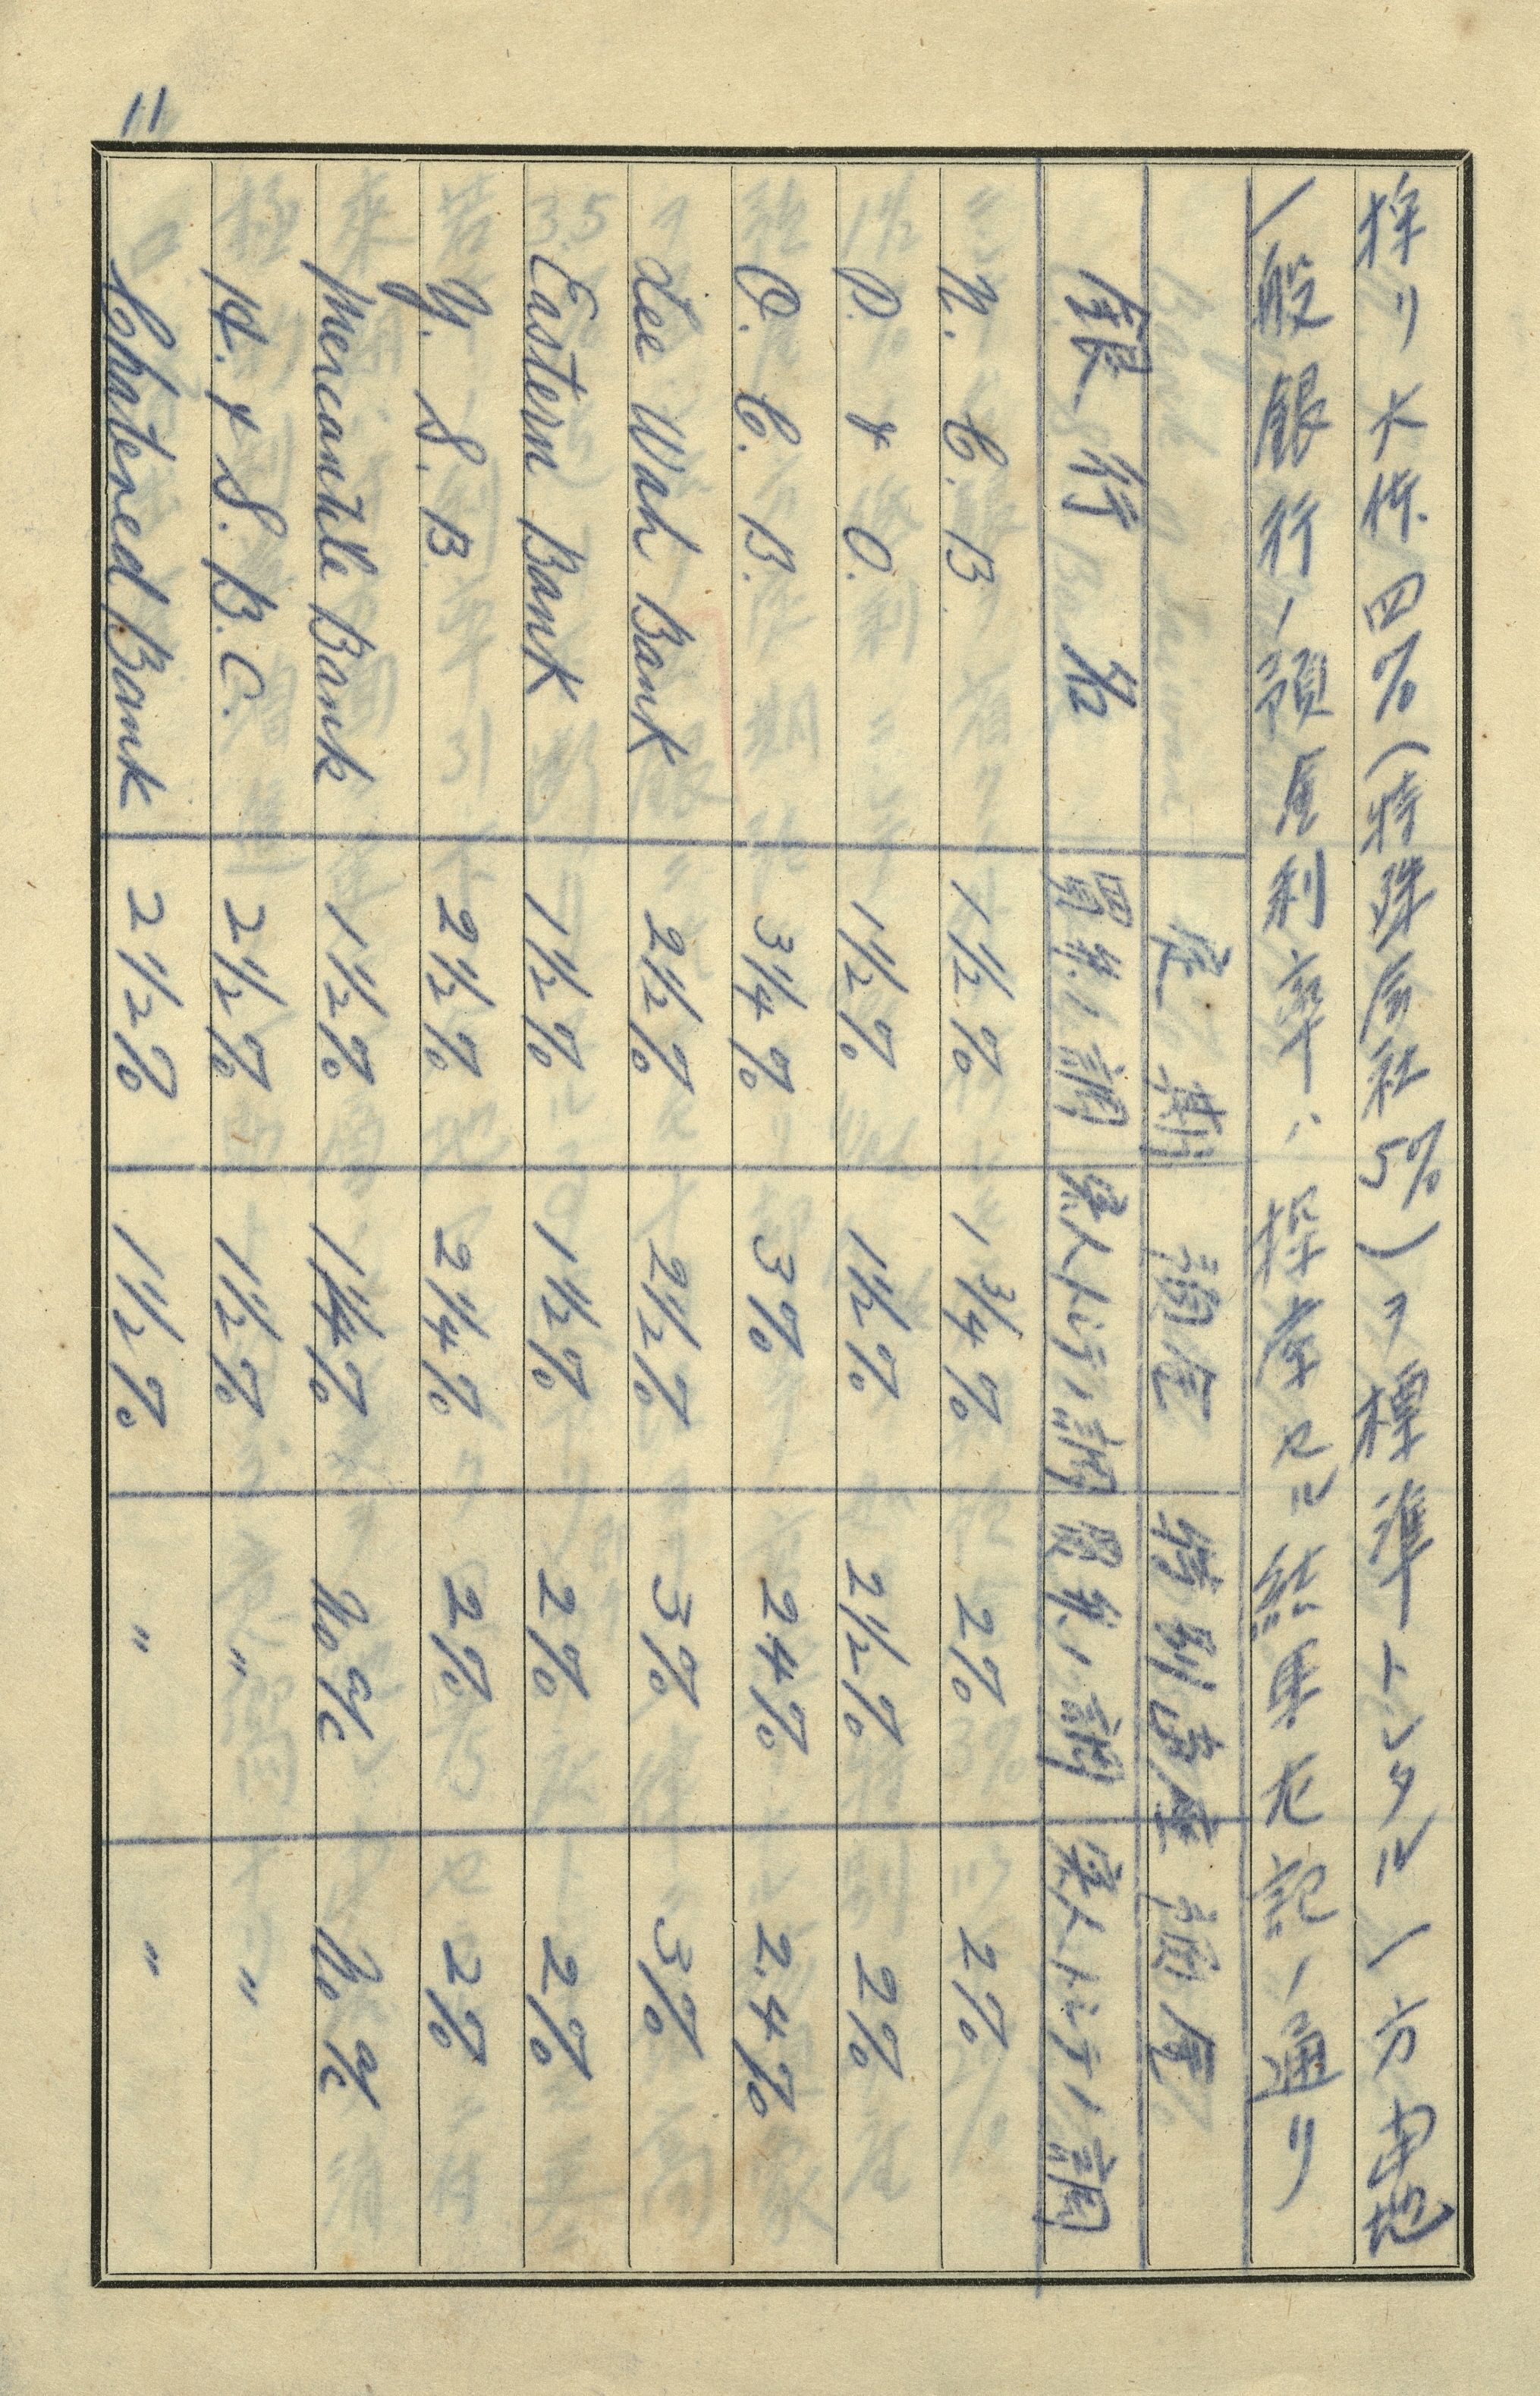 11
採リ大体四%(特殊会社5%)ヲ標準トシタル一方当地
一般銀行ノ預金利率ニ
探索セル結果左記ノ通リ
定期預金
特別当座預金
銀行名
買弁ノ調
系人トシテノ調
買弁ノ調
系人トシテノ調
N. C. B. 1 1/2 % 1 3/4 % 2% 2%
P. & O. 1 1/2 % 1 1/2 % 2 1/2 % 2%
O. C. B. 3 1/4 % 3% 2.4% 2.4%
Lee Wah Bank 2 1/2 % 2 1/2 % 3% 3%
Eastern Bank 1 1/2 % 1 1/2 % 2% 2%
Y. S. B. 2 1/2 % 2 1/4 % 2% 2%
Mercantile Bank 1 1/2 % 1 1/4 % No % No %
H. & S. B. C. 2 1/2 % 1 1/2 % " "
Chartered Bank 2 1/2 % 1 1/2 % " "